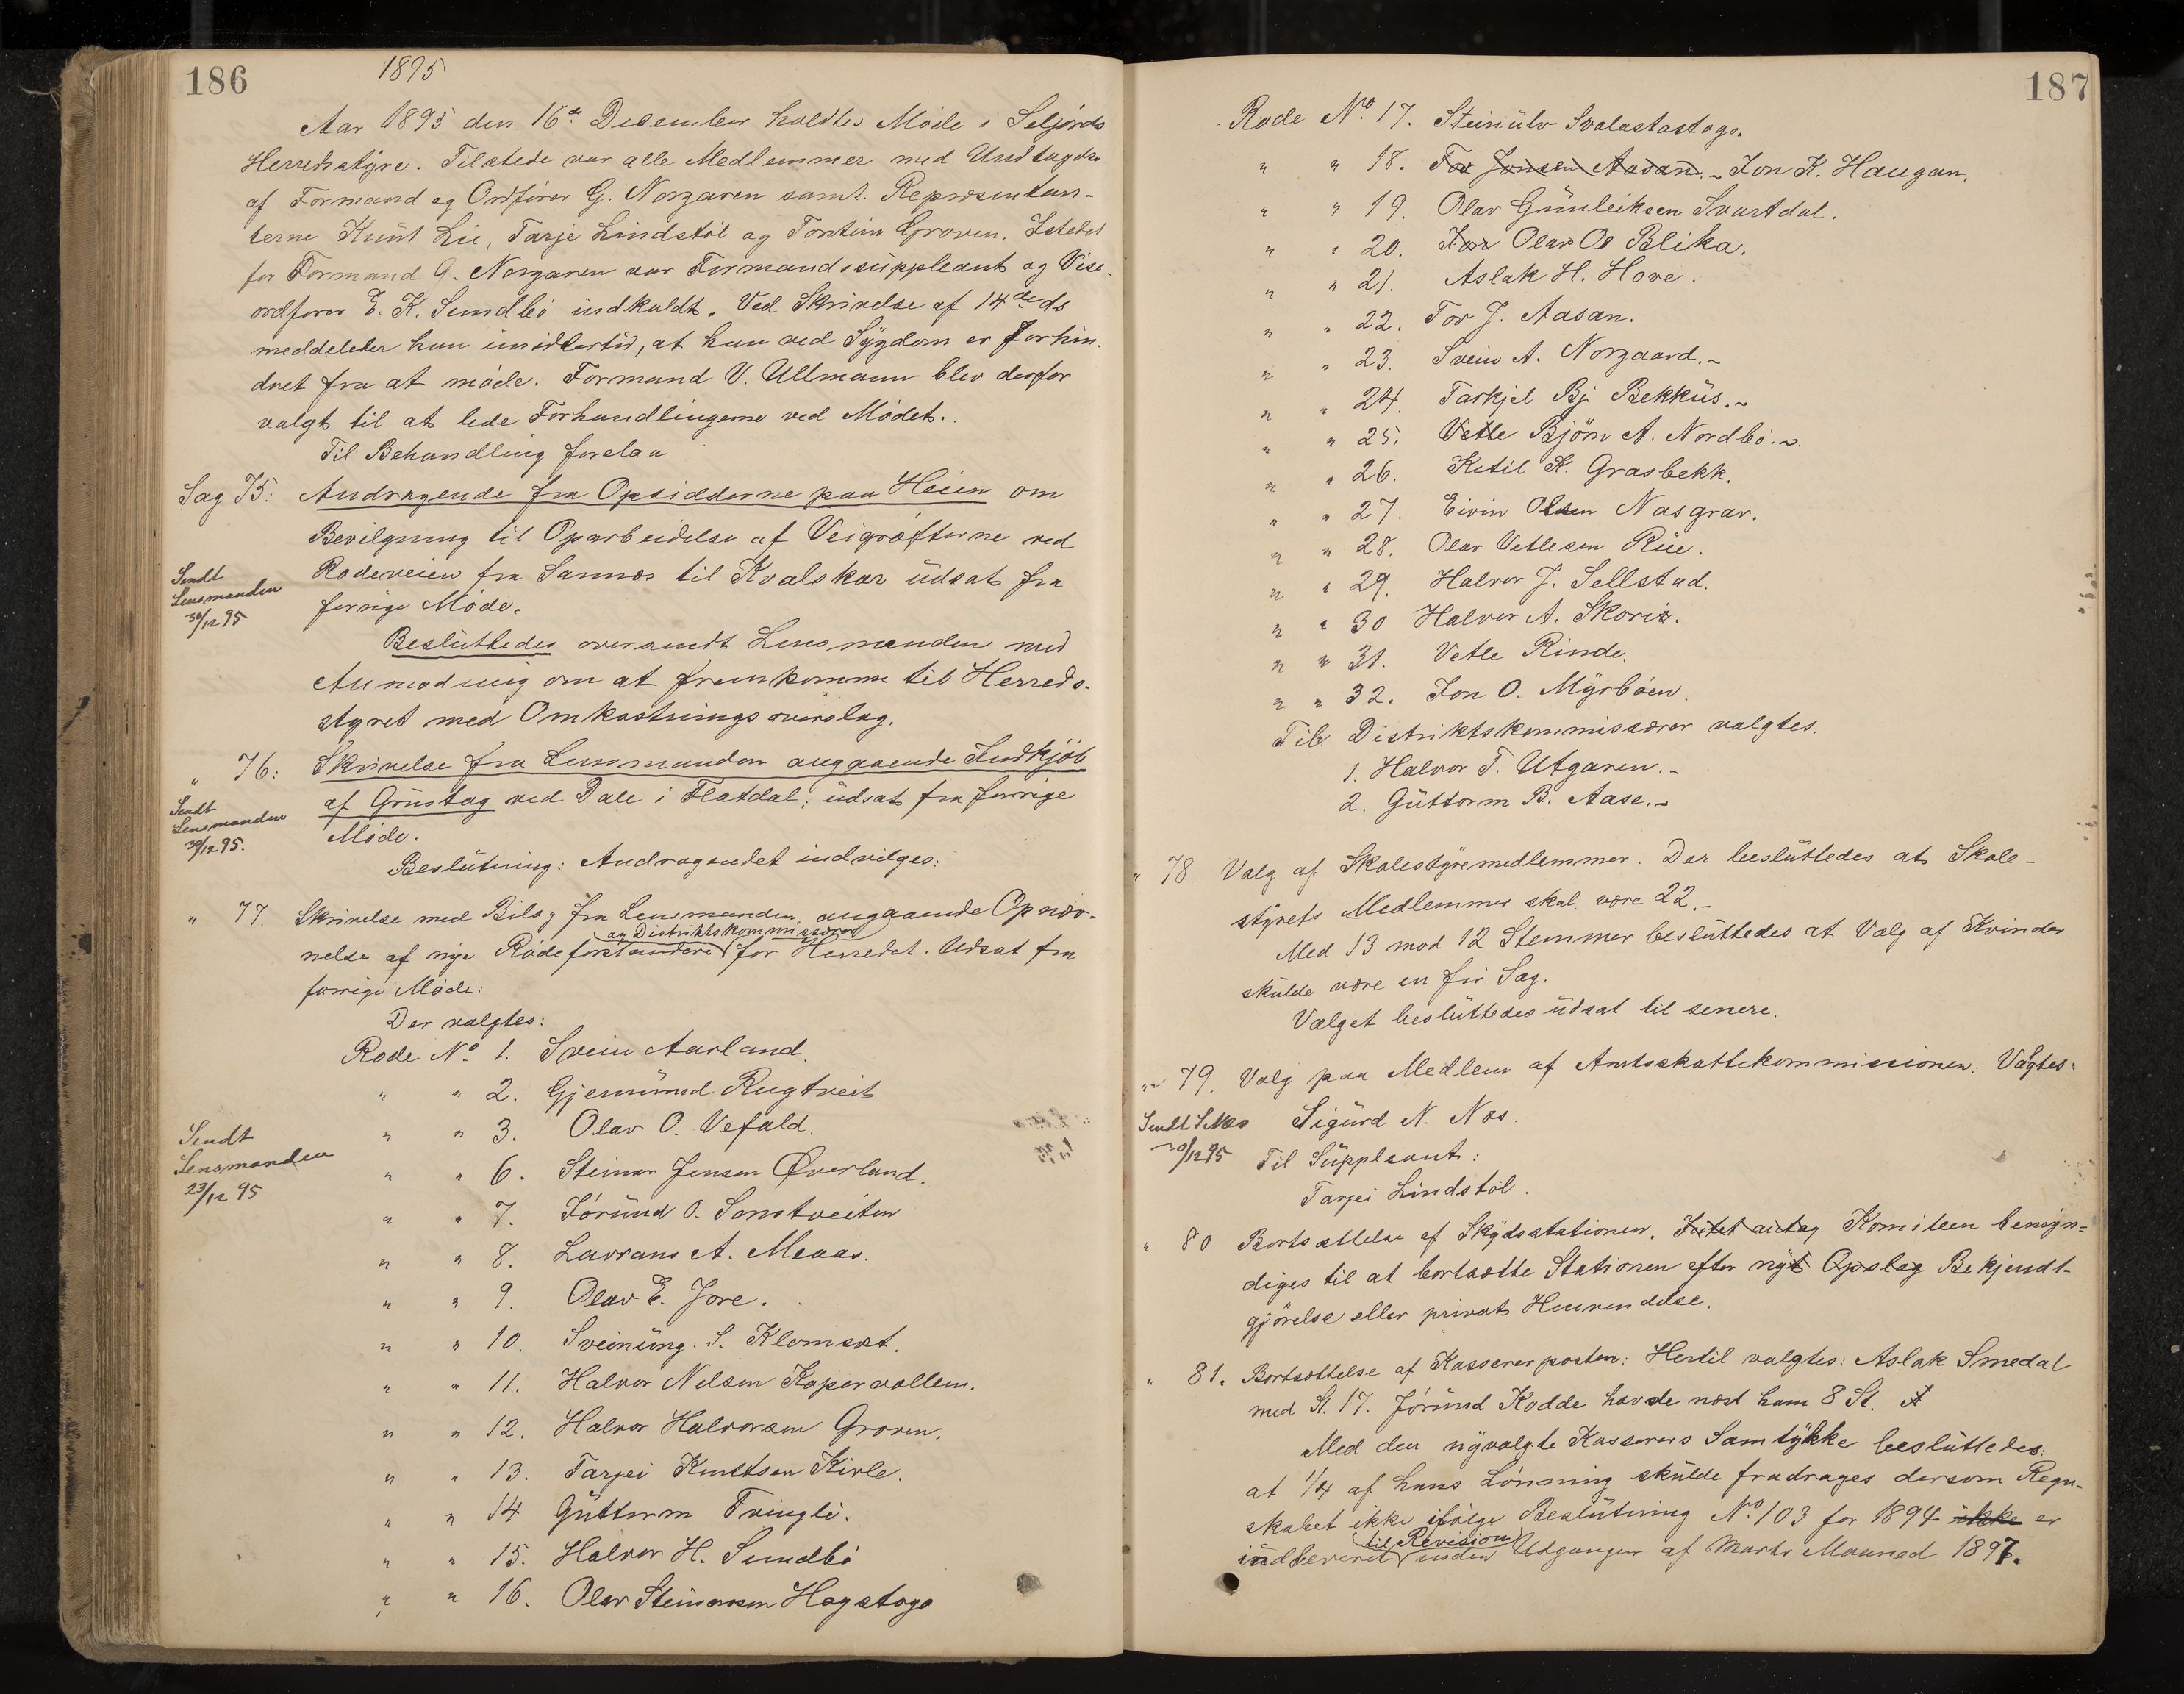 186
1895
Aar 1895 den 16de December holdtes Møde i Seljords
Herredsstyre. Tilstede var alle Medlemmer med Undtagelse
af Formand og Ordfører G. Norgaren samt Repræsentan-
terne Knut Lie, Tarje Lindstöl og Torstein Groven. Istedet
for Formand G. Norgaren var Formandssuppleant og Vise-
ordfører E. K. Sundbö indkaldt. Ved Skrivelse af 14de ds
meddeleter han imidlertid, at han ved Sygdom er forhin-
dret fra at møde. Formand V. Ullmann blev derfor
valgt til at lede Forhandlingerne ved Mödet.
Til Behandling forelaa
Sag 75: Andragende fra Opsidderne paa Heien om
Bevilgning til Oparbeidelse af Veigrøfterne ved
Rodeveien fra Sannes til Kvalskar udsat fra
forrige Møde.
Sendt
Lensmanden
30/12 95
Besluttedes oversendt Lensmanden med
Anmodning om at fremkomme til Herreds-
styret med Omkostningsoverslag.
" 76: Skrivelse fra Lensmanden angaaende Indkjöb
af Grustag ved Dale i Flatdal; udsat fra forrige
Møde.
Sendt
Lensmanden
30/12 95.
Beslutning: Andragendet indvilges.
" 77. Skrivelse med Bilag fra Lensmanden, angaaende Opnæv-
og Distriktskommissærer
nelse af nye Rodeforstandere for Herredet. Udsat fra
forrige Møde:
Der valgtes:
Rode No. 1. Svein Aarland.
" " 2. Gjermund Rugtveit
" " 3. Olav O. Vefald.
Sendt
Lensmanden
23/12 95
" " 6. Steinar Jensen Øverland.
" " 7. Jörund O. Sanstveiten
" " 8. Lavrans A. Meaas.
" " 9. Olav E. Jore.
" " 10. Sveinung. S. Klomset.
" " 11. Halvor Nilsen Kapervollem.
" " 12. Halvor Halvorsen Groven.
" " 13. Tarjei Knutsen Kivle.
" " 14 Guttorm Tvingli.
" " 15. Halvor H. Sundbö
" " 16. Olav Steinarsen Hagstoga
187
Rode No. 17. Steinulv Svalastastogo.
" " 18. Tor Jonsen Aasan. Jon K. Haugan.
" " 19. Olav Gunleiksen Svartdal.
" " 20. Tor Olav Ol Blika.
" " 21. Aslak H. Hove.
" " 22. Tor J. Aasan.
" " 23. Svein A. Norgaard.
" " 24. Tarkjel Bj Bekkus.
" " 25. Vetle Björn A. Nordbö.
" " 26. Ketil K. Grasbekk.
" " 27. Eivin Olsen Nasgrav.
" " 28. Olav Vetlesen Rue.
" " 29. Halvor J. Sellstad.
" " 30 Halvor A. Skori.
" " 31. Vetle Rinde.
" " 32. Jon O. Myrböen.
Til Distriktskommissærer valgtes.
1. Halvor T. Utgaren.
2. Guttorm B. Aase.
" 78. Valg af Skolestyremedlemmer. Der besluttedes at Skole-
styrets Medlemmer skal være 22.
Med 13 mod 12 Stemmer besluttedes at Valg af Kvinder
skulde være en fri Sag.
Valget besluttedes udsat til senere.
" 79. Valg paa Medlem af Amtsskattekommissionen: Valgtes:
Sigurd N. Næs.
Sendt S. Næs
30/12 95
Til Suppleant:
Tarjei Lindstöl.
" 80 Bortsættelse af Skydsstationen. Intet antag. Komiteen bemyn-
diges til at bortsætte Stationen efter nyt Opslag Bekjendt-
gjörelse eller privat Henvendelse.
" 81. Bortsættelse af Kassererposten: Hertil valgtes: Aslak Smedal
med St. 17. Jörund Kodde havde næst ham 8 St. A
Med den nyvalgte Kasserers Samtykke besluttedes:
at 1/4 af hans Lønning skulde fradrages dersom Regn-
skabet ikke ifølge Beslutning No. 103 for 1894 ikke er
til Revision
indleveret inden Udgangen af Marts Maaned 1897.